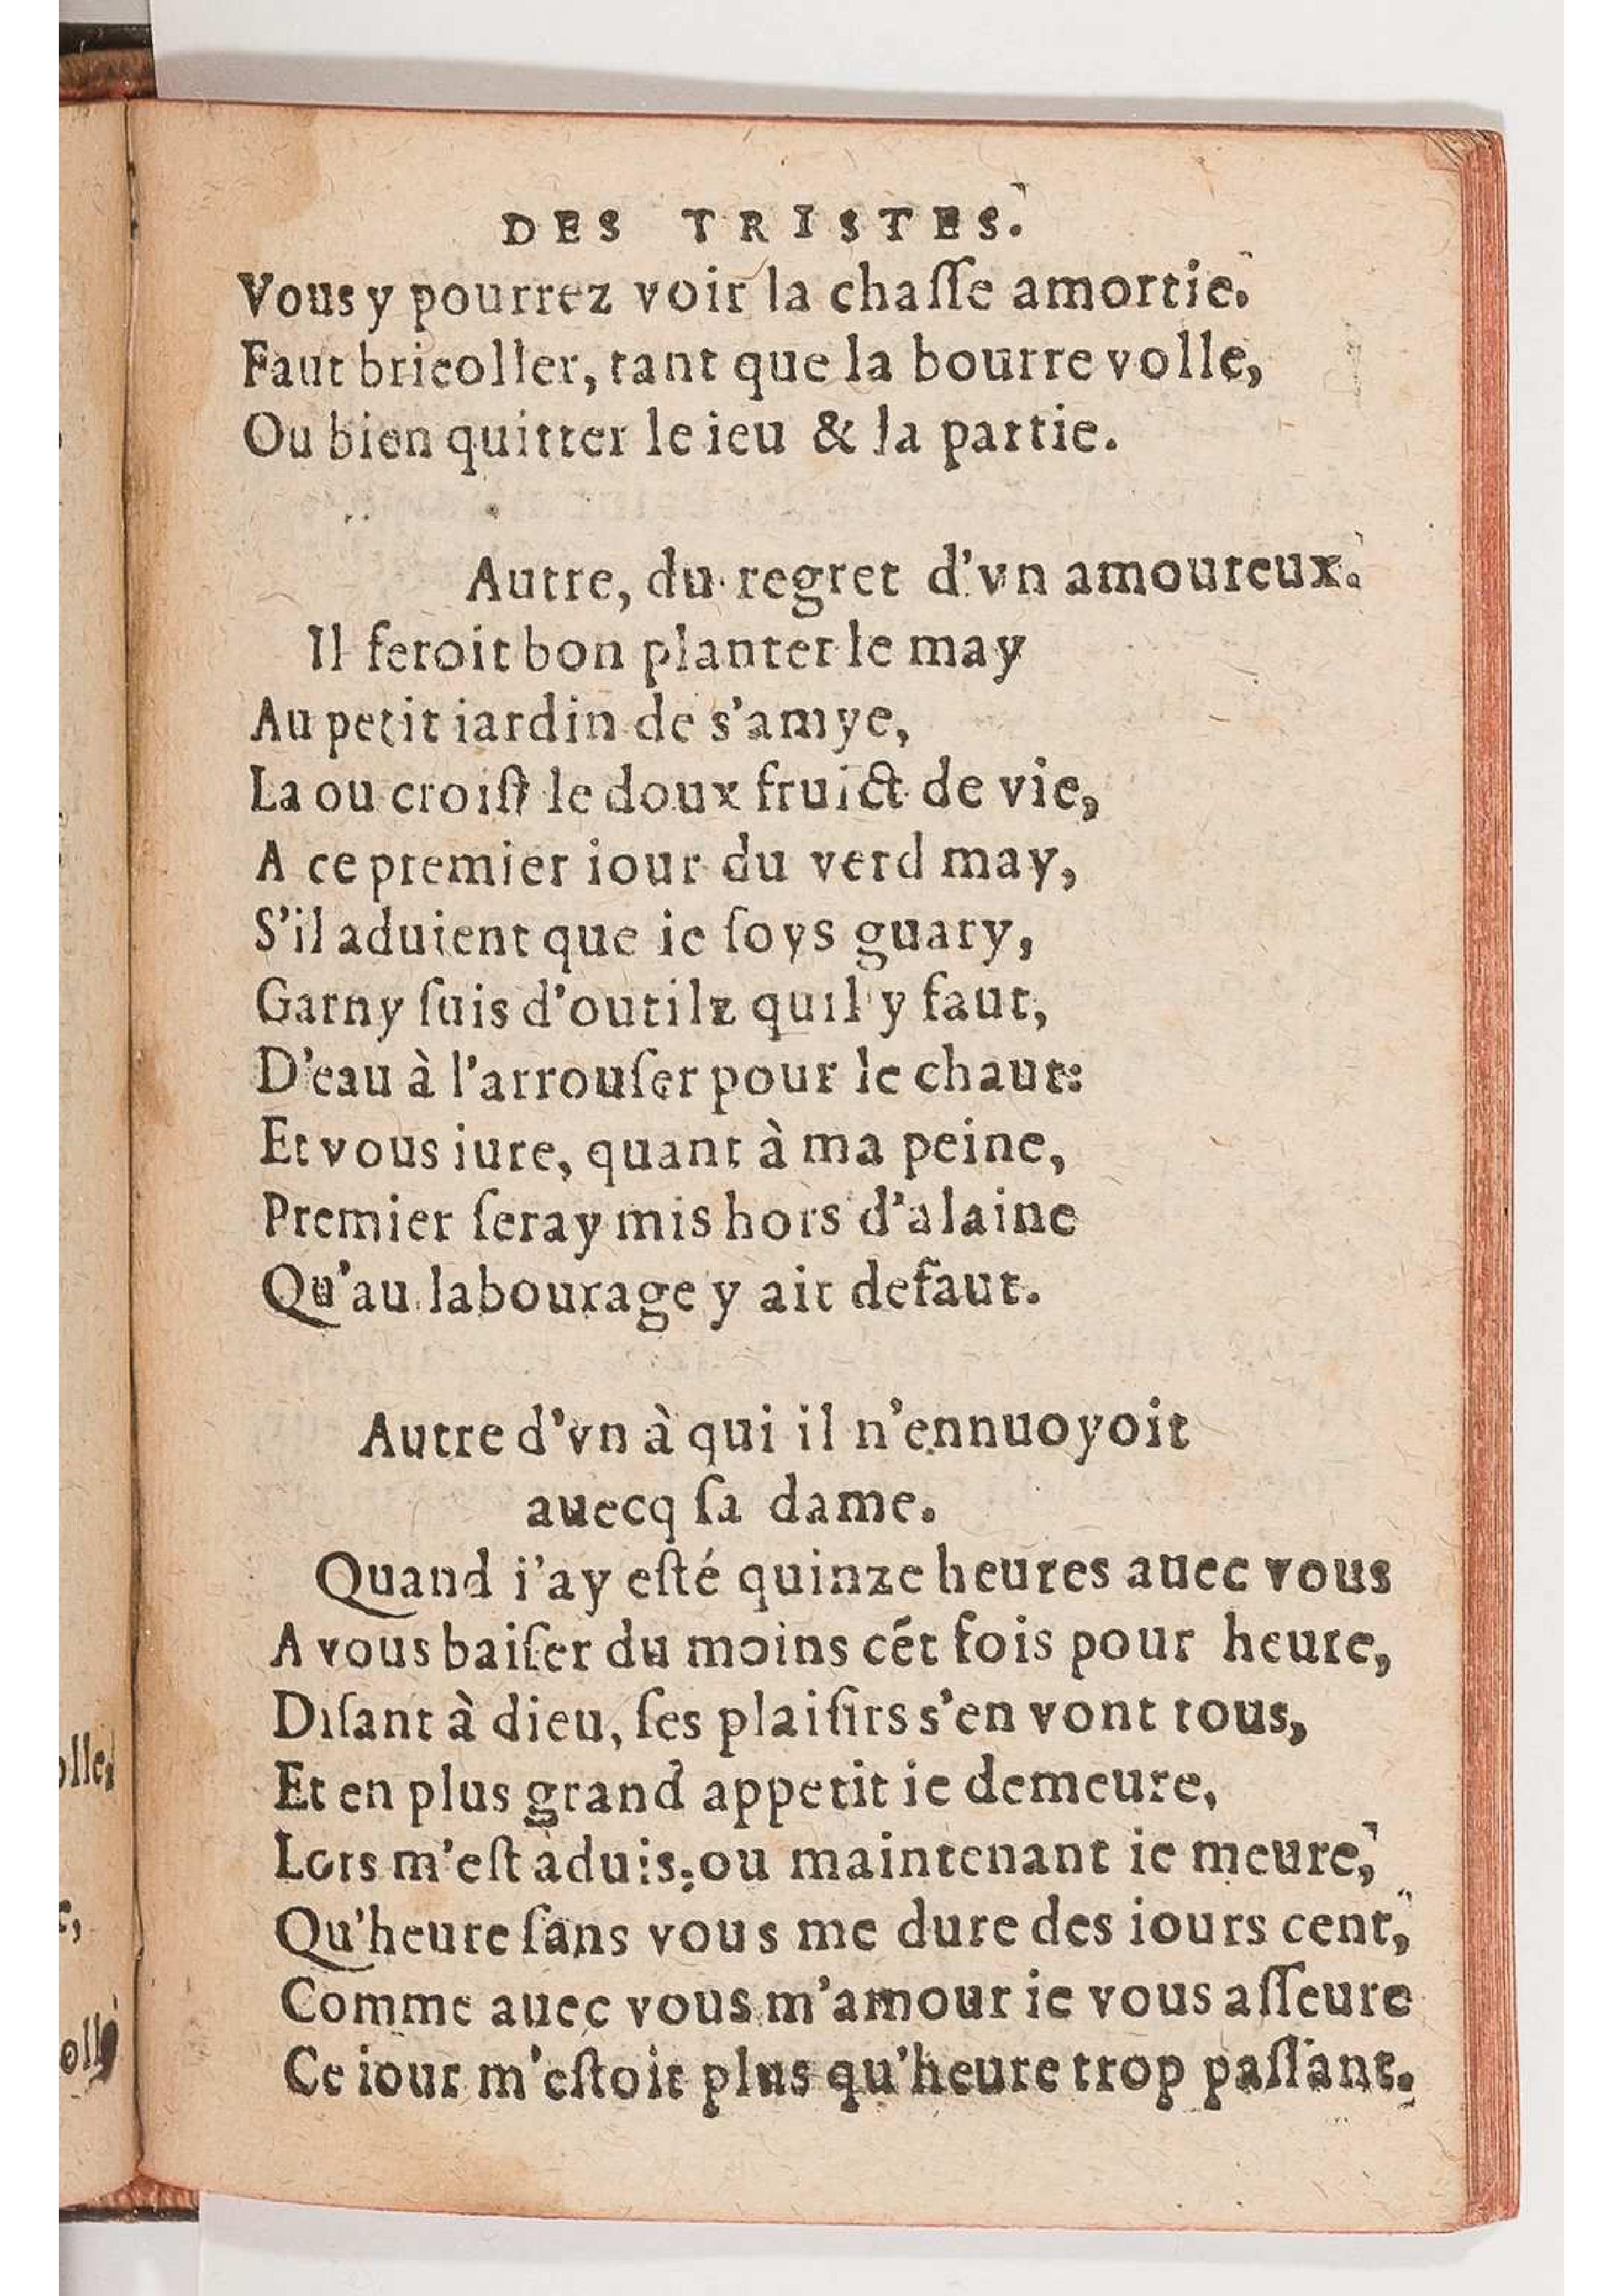 DES TRISTES.
Vous y pourrez voir la chaſſe amortie.
Faut bricoller, tant que la bourre volle,
Ou bien quitter le ieu & la partie.
Autre, du regret d'vn amoureux.
Il feroit bon planter le may
Au petit iardin de s'amye,
La ou croiſt le doux fruict de vie,
A ce premier iour du verd may,
S'il aduient que ie ſoys guary,
Garny ſuis d'outilz quil y faut,
D'eau à l'arrouſer pour le chaut:
Et vous iure, quant à ma peine,
Premier ſeray mis hors d'alaine
Qu'au labourage y ait defaut.
Autre d'vn à qui il n'ennuoyoit
auecq ſa dame.
Quand i'ay eſté quinze heures auec vous
A vous baiſer du moins cét fois pour heure,
Diſant à dieu, ſes plaiſirs s'en vont tous,
Et en plus grand appetit ie demeure,
Lors m'eſt aduis, ou maintenant ie meure,
Qu'heure ſans vous me dure des iours cent,
Comme auec vous m'amour ie vous aſſeure
Ce iour m'eſtoit plus qu'heure trop paſſant.